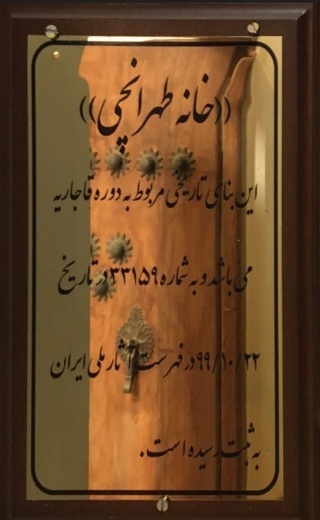 ((خانه طهرانچی))
این بنای تاریخی مربوط به دوره قاجاریه
می باشد و به شماره ۳۳۱۵۹ در تاریخ
۹۹/۱۰/۲۲ در فهرست آثار ملی ایران
به ثبت رسیده است.